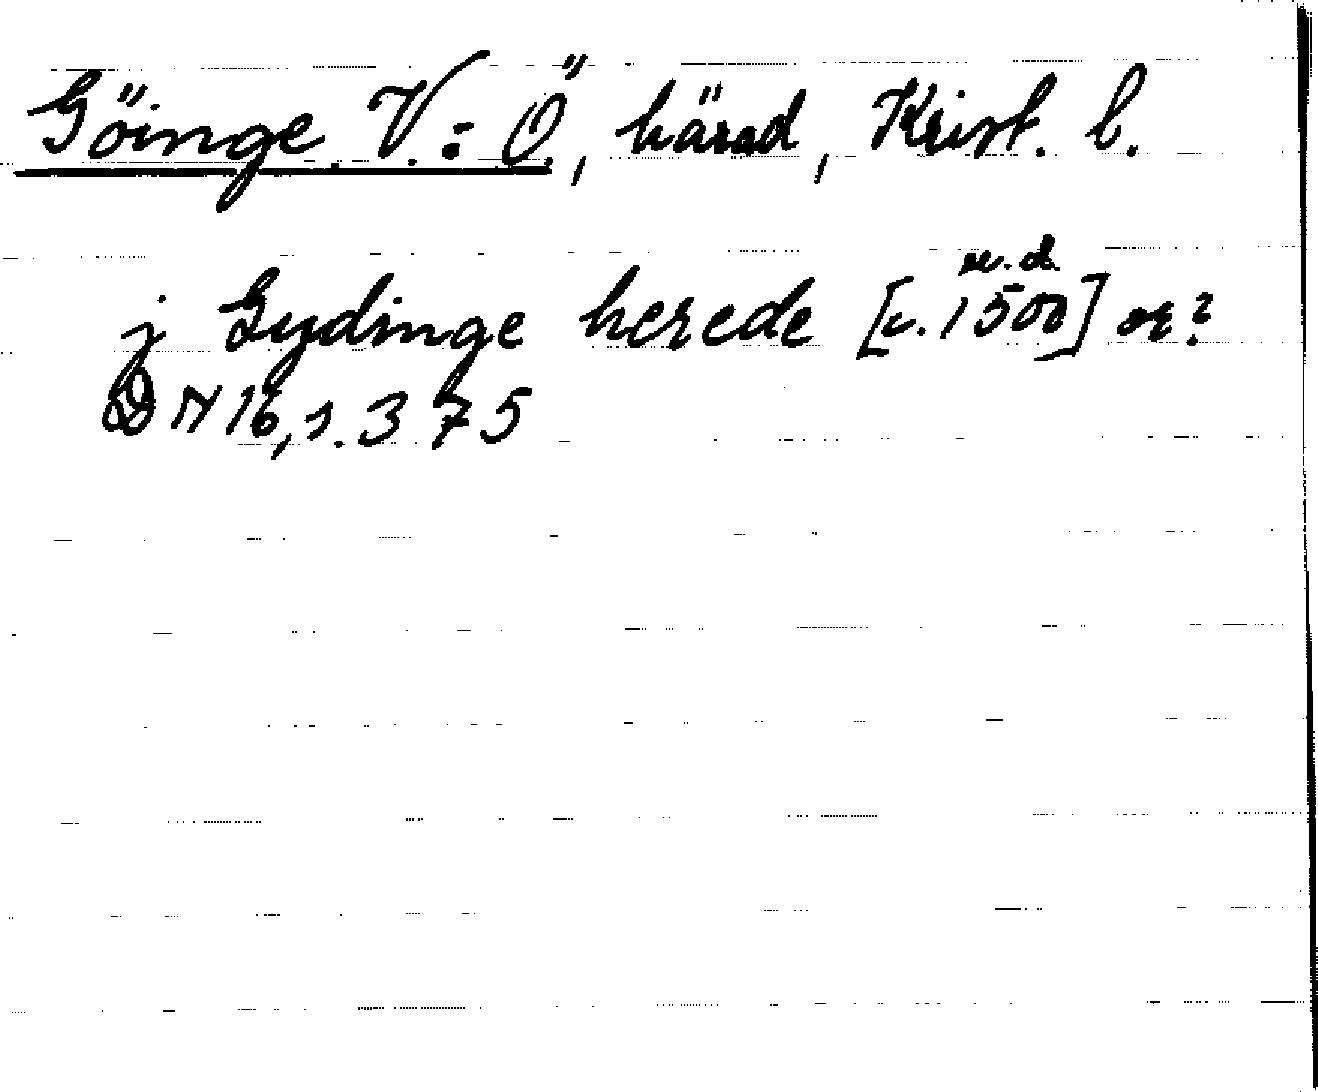 Göinge. V.: Ö., härad, Krist. l.
u. d.
j Gydinge herede [c. 1500] or?
DN 16, s. 375